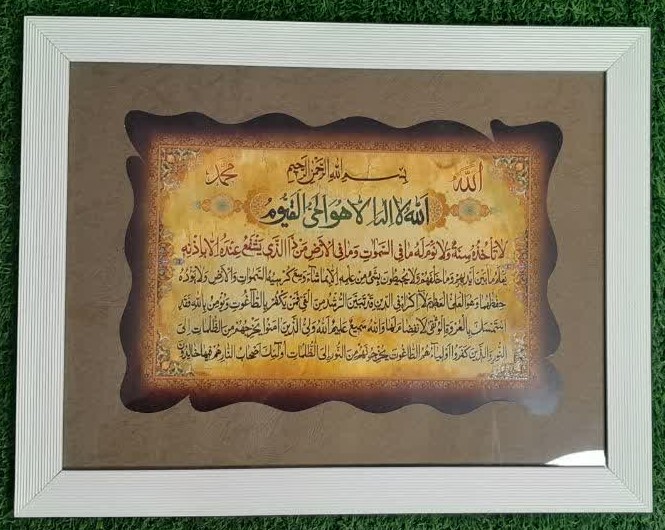 الله بسم الله الرحمن الرحيم محمد
الله لا اله الا هو الحي القيوم
لا تأخذه سنة ولا نوم له ما في السموات وما في الارض من ذا الذي يشفع عنده الا باذنه
يعلم ما بين ايديهم وما خلفهم ولا يحيطون بشيء من علمه الا بما شاء وسع كرسيه السموات والارض ولا يؤده
حفظهما وهو العلي العظيم لا اكراه في الدين قد تبين الرشد من الغي فمن يكفر بالطاغوت ويؤمن بالله فقد
استمسك بالعروة الوثقى لا انفصام لها والله سميع عليم الله ولي الذين امنوا يخرجهم من الظلمات الى
النور والذين كفروا اولياؤهم الطاغوت يخرجونهم من النور الى الظلمات اولئك اصحاب النار هم فيها خالدون